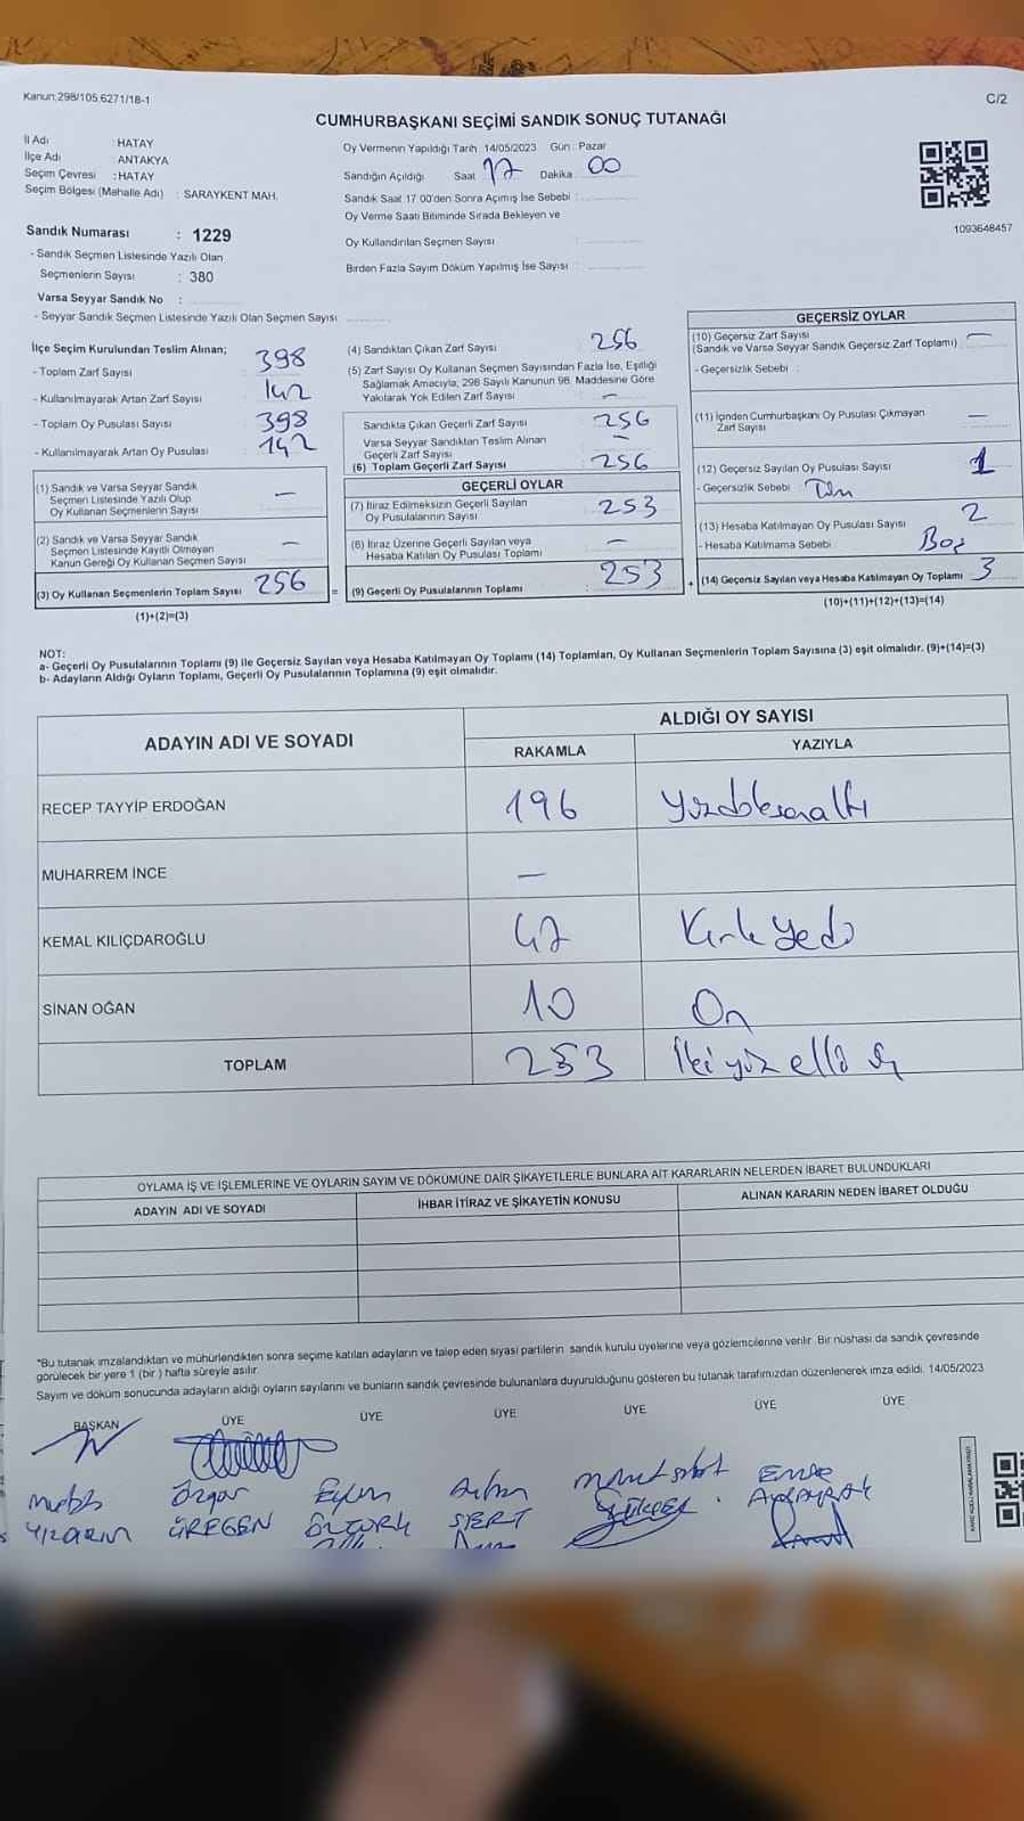 Kanun:298/105,6271/18-1
C/2
CUMHURBAŞKANI SEÇİMİ SANDIK SONUÇ TUTANAĞI
İl Adı : HATAY
İlçe Adı : ANTAKYA
Seçim Çevresi : HATAY
Seçim Bölgesi (Mahalle Adı) : SARAYKENT MAH.
Sandık Numarası : 1229
- Sandık Seçmen Listesinde Yazılı Olan
Seçmenlerin Sayısı : 380
Varsa Seyyar Sandık No :
- Seyyar Sandık Seçmen Listesinde Yazılı Olan Seçmen Sayısı
Oy Vermenin Yapıldığı Tarih : 14/05/2023 Gün : Pazar
Sandığın Açıldığı Saat 17 Dakika 00
Sandık Saat 17:00'den Sonra Açımış İse Sebebi :
Oy Verme Saati Bitiminde Sırada Bekleyen ve
Oy Kullandırılan Seçmen Sayısı
Birden Fazla Sayım Döküm Yapılmış İse Sayısı :
1093648457
İlçe Seçim Kurulundan Teslim Alınan;
- Toplam Zarf Sayısı 398
- Kullanılmayarak Artan Zarf Sayısı 142
- Toplam Oy Pusulası Sayısı 398
- Kullanılmayarak Artan Oy Pusulası 142
(1) Sandık ve Varsa Seyyar Sandık
Seçmen Listesinde Yazılı Olup
Oy Kullanan Seçmenlerin Sayısı —
(2) Sandık ve Varsa Seyyar Sandık
Seçmen Listesinde Kayıtlı Olmayan
Kanun Gereği Oy Kullanan Seçmen Sayısı —
(3) Oy Kullanan Seçmenlerin Toplam Sayısı 256
(1)+(2)=(3)
(4) Sandıktan Çıkan Zarf Sayısı 256
(5) Zarf Sayısı Oy Kullanan Seçmen Sayısından Fazla İse, Eşitliği
Sağlamak Amacıyla, 298 Sayılı Kanunun 98. Maddesine Göre
Yakılarak Yok Edilen Zarf Sayısı —
Sandıkta Çıkan Geçerli Zarf Sayısı 256
Varsa Seyyar Sandıktan Teslim Alınan
Geçerli Zarf Sayısı —
(6) Toplam Geçerli Zarf Sayısı 256
GEÇERLİ OYLAR
(7) İtiraz Edilmeksizin Geçerli Sayılan
Oy Pusulalarının Sayısı 253
(8) İtiraz Üzerine Geçerli Sayılan veya
Hesaba Katılan Oy Pusulası Toplamı —
= (9) Geçerli Oy Pusulalarının Toplamı : 253
GEÇERSİZ OYLAR
(10) Geçersiz Zarf Sayısı
(Sandık ve Varsa Seyyar Sandık Geçersiz Zarf Toplamı) —
- Geçersizlik Sebebi :
(11) İçinden Cumhurbaşkanı Oy Pusulası Çıkmayan
Zarf Sayısı —
(12) Geçersiz Sayılan Oy Pusulası Sayısı 1
- Geçersizlik Sebebi
(13) Hesaba Katılmayan Oy Pusulası Sayısı 2
- Hesaba Katılmama Sebebi : Boş
+ (14) Geçersiz Sayılan veya Hesaba Katılmayan Oy Toplamı 3
(10)+(11)+(12)+(13)=(14)
NOT:
a- Geçerli Oy Pusulalarının Toplamı (9) ile Geçersiz Sayılan veya Hesaba Katılmayan Oy Toplamı (14) Toplamları, Oy Kullanan Seçmenlerin Toplam Sayısına (3) eşit olmalıdır. (9)+(14)=(3)
b- Adayların Aldığı Oyların Toplamı, Geçerli Oy Pusulalarının Toplamına (9) eşit olmalıdır.
ADAYIN ADI VE SOYADI
ALDIĞI OY SAYISI
RAKAMLA YAZIYLA
RECEP TAYYİP ERDOĞAN 196 Yüzdoksanaltı
MUHARREM İNCE —
KEMAL KILIÇDAROĞLU 47 Kırk yedi
SİNAN OĞAN 10 On
TOPLAM 253 İki yüz elli üç
OYLAMA İŞ VE İŞLEMLERİNE VE OYLARIN SAYIM VE DÖKÜMÜNE DAİR ŞİKAYETLERLE BUNLARA AİT KARARLARIN NELERDEN İBARET BULUNDUKLARI
ADAYIN ADI VE SOYADI İHBAR İTİRAZ VE ŞİKAYETİN KONUSU ALINAN KARARIN NEDEN İBARET OLDUĞU
*Bu tutanak imzalandıktan ve mühürlendikten sonra seçime katılan adayların ve talep eden siyasi partilerin sandık kurulu üyelerine veya gözlemcilerine verilir. Bir nüshası da sandık çevresinde
görülecek bir yere 1 (bir ) hafta süreyle asılır.
Sayım ve döküm sonucunda adayların aldığı oyların sayılarını ve bunların sandık çevresinde bulunanlara duyurulduğunu gösteren bu tutanak tarafımızdan düzenlenerek imza edildi. 14/05/2023
BAŞKAN ÜYE ÜYE ÜYE ÜYE ÜYE ÜYE
Özgür
ÜREGEN
ÖZTÜRK
SERT
EMRE